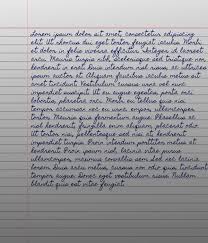 Lorem ipsum dolor sit amet, consectetur adipiscing
elit. Ut rhoncus dui eget tortor feugiat iaculis. Morbi
et dolor in felis viverra efficitur. Integer id laoreet
arcu. Mauris turpis nibh, scelerisque sed tristique non,
hendrerit in erat. Duis interdum nisl risus, ac ultricies
ipsum auctor at. Aliquam faucibus iaculis metus sit
amet tincidunt. Vestibulum cursus urna vel nunc
imperdiet suscipit. Ut eu augue egestas, porta nunc
lobortis, pharetra arcu. Morbi eu tellus quis nisi
tempor accumsan nec eu urna. Aenean ullamcorper
tortor. Mauris quis fermentum augue. Phasellus ac
nisl hendrerit, fringilla enim aliquam, placerat odio.
Ut tortor nisi, pellentesque sed nisi at, hendrerit
imperdiet turpis. Proin interdum porttitor metus at
hendrerit. Proin ipsum nisl, lacinia vitae purus
ullamcorper, maximus convallis sem. Sed nec lacinia
lorem. Curabitur non odio quis tincidunt
tempor augue. Donec eget vestibulum risus. Nullam
blandit quis est vitae feugiat.